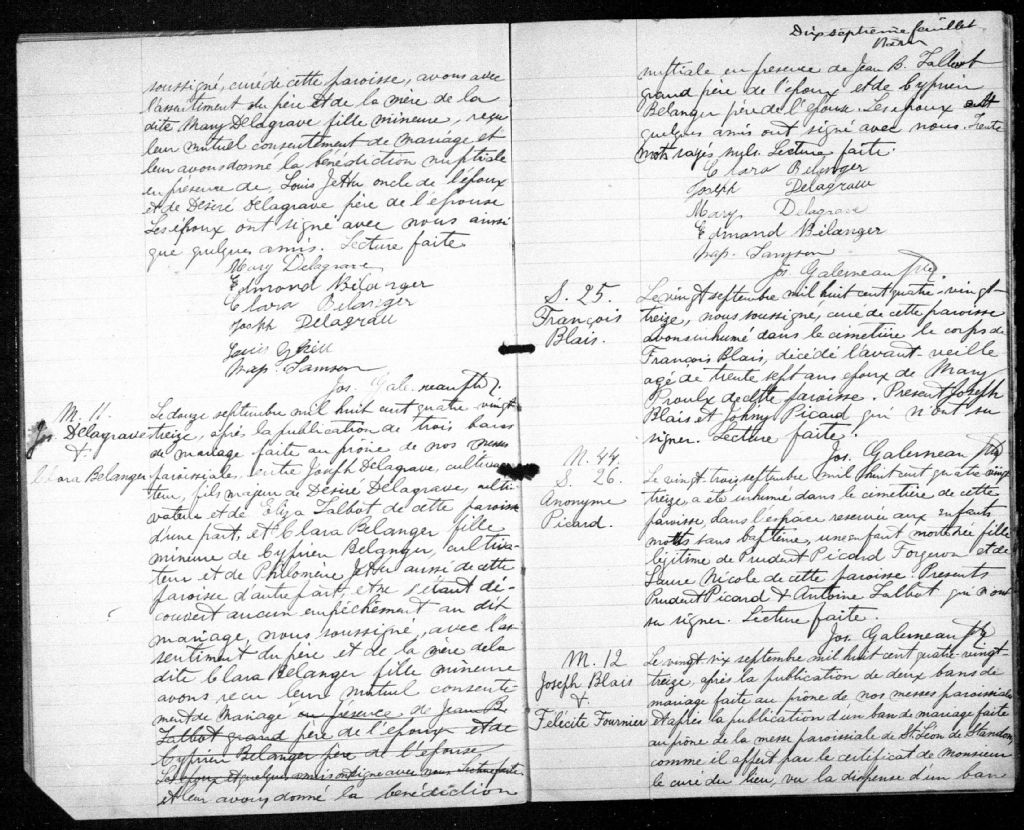 soussigné, curé de cette paroisse, avons avec
l'assentiment du père et de la mère de la
dite Mary Delagrave fille mineure, reçu
leur mutuel consentement de mariage et
leur avons donné la bénédiction nuptiale
en présence de Louis Jetté oncle de l'époux
et de Désiré Delagrave père de l'épouse
Les époux ont signé avec nous ainsi
que quelques amis. Lecture faite
Mary Delagrave
Edmond Bélanger
Clara Bélanger
Joseph Delagrave
Louis
Nap. Samson
Jos. Galerneau Ptr.
M. 11.
Jos. Delagrave
&
Clara Belanger
Le douze septembre mil huit cent quatre-vingt
treize, après la publication de trois bans
de mariage faite au prône de nos messes
paroissiale, entre Joseph Delagrave, cultiva-
teur, fils majeur de Désiré Delagrave, culti-
vateur et de Eliza Talbot de cette paroisse
d'une part, et Clara Belanger fille
mineure de Cyprien Belanger, cultiva-
teur et de Philomène Jetté aussi de cette
paroisse d'autre part, et ne s'étant dé-
couvert aucun empêchement au dit
mariage, nous soussigné, avec l'as-
sentiment du père et de la mère de la
dite Clara Belanger fille mineure
avons reçu leur mutuel consente-
ment de mariage en présence de Jean B.
Talbot grand père de l'époux et de
Cyprien Belanger père de l'épouse
Les époux et quelques amis ont signé avec nous Lecture faite
et leur avons donné la bénédiction
Dix septième feuillet
nuptiale en présence de Jean B. Talbot
grand père de l'époux et de Cyprien
Belanger père de l'épouse. Les époux et
quelques amis ont signé avec nous. Trente
mots rayés nuls. Lecture faite.
Clara Belanger
Joseph Delagrave
Mary Delagrave
Edmond Bélanger
Nap. Samson
Jos. Galerneau Ptr.
S. 25.
François
Blais.
Le vingt septembre mil huit cent quatre-vingt
treize, nous soussigné, curé de cette paroisse
avons inhumé dans le cimetière le corps de
François Blais, décédé l'avant-veille
agé de trente sept ans époux de Mary
Proulx de cette paroisse. Présent Joseph
Blais et Johny Picard qui n'ont su
signer. Lecture faite.
Jos. Galerneau Ptr
N. 44.
S. 26.
Anonyme
Picard.
Le vingt trois septembre mil huit cent quatre vingt
treize, a été inhumé dans le cimetière de cette
paroisse, dans l'espace réservée aux enfants
morts sans baptême, un enfant mort née fille
légitime de Prudent Picard Forgeron et de
Laure Nicole de cette paroisse. Présents
Prudent Picard & Antoine Talbot qui n'ont
su signer. Lecture faite.
Jos. Galerneau Ptr
M. 12
Joseph Blais
&
Félécité Fournier
Le vingt six septembre mil huit cent quatre-vingt
treize, après la publication de deux bans de
mariage faite au prône de nos messes paroissiales
et après la publication d'un ban de mariage faite
au prône de la messe paroissiale de St. Léon de Standon,
comme il appert par le certificat de Monsieur
le curé du lieu, vu la dispense d'un ban